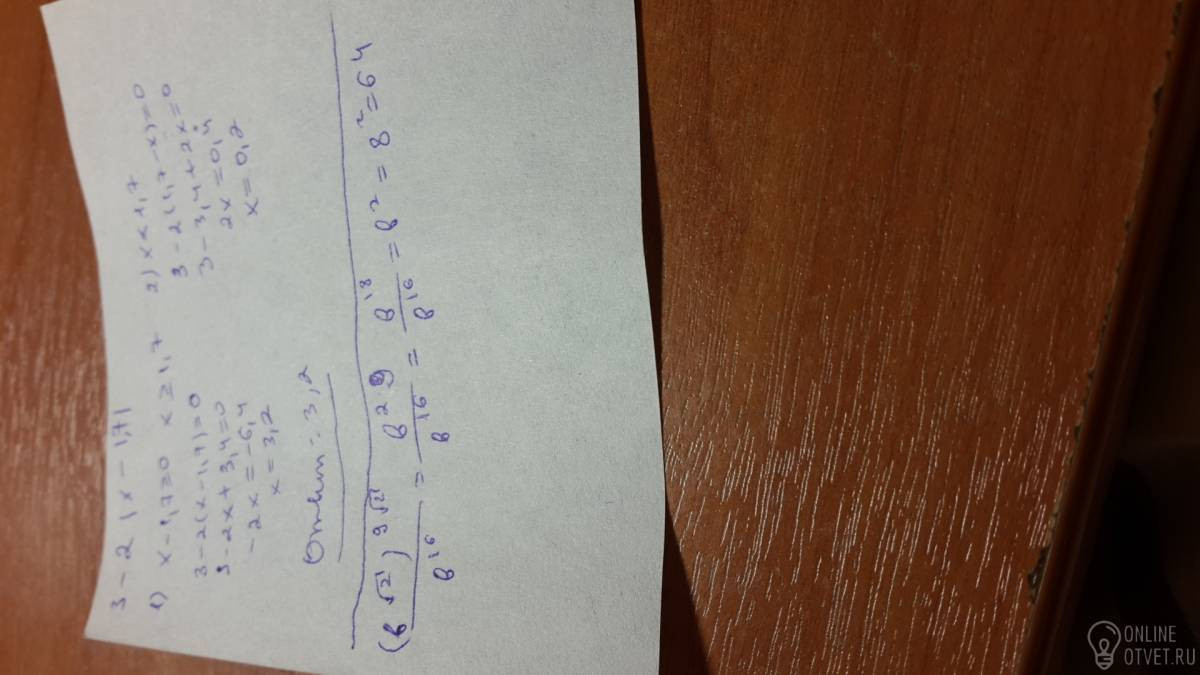 3 - 2 |x - 1,7|
1) x - 1,7 ≥ 0 x ≥ 1,7
3 - 2(x - 1,7) = 0
3 - 2x + 3,4 = 0
-2x = -6,4
x = 3,2
2) x < 1,7
3 - 2(1,7 - x) = 0
3 - 3,4 + 2x = 0
2x = 0,4
x = 0,2
Ответ: 3,2
(в √2)^9√2 / в^16 = в^2·9 / в^16 = в^18 / в^16 = в^2 = 8^2 = 64
ONLINE
OTVET.RU